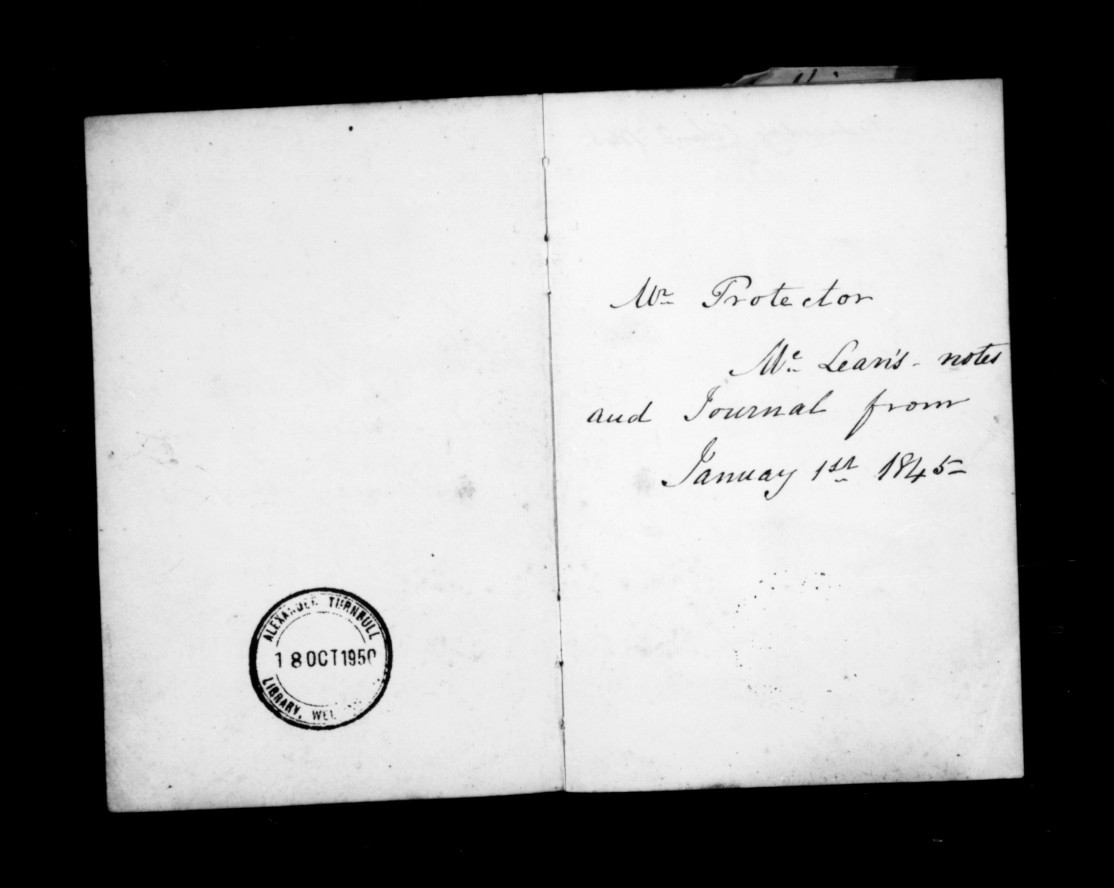 ALEXANDER TURNBULL
18 OCT 1950
LIBRARY, WEL
Mr Protector
Mc Lean's - notes
and Journal from
January 1st 1845